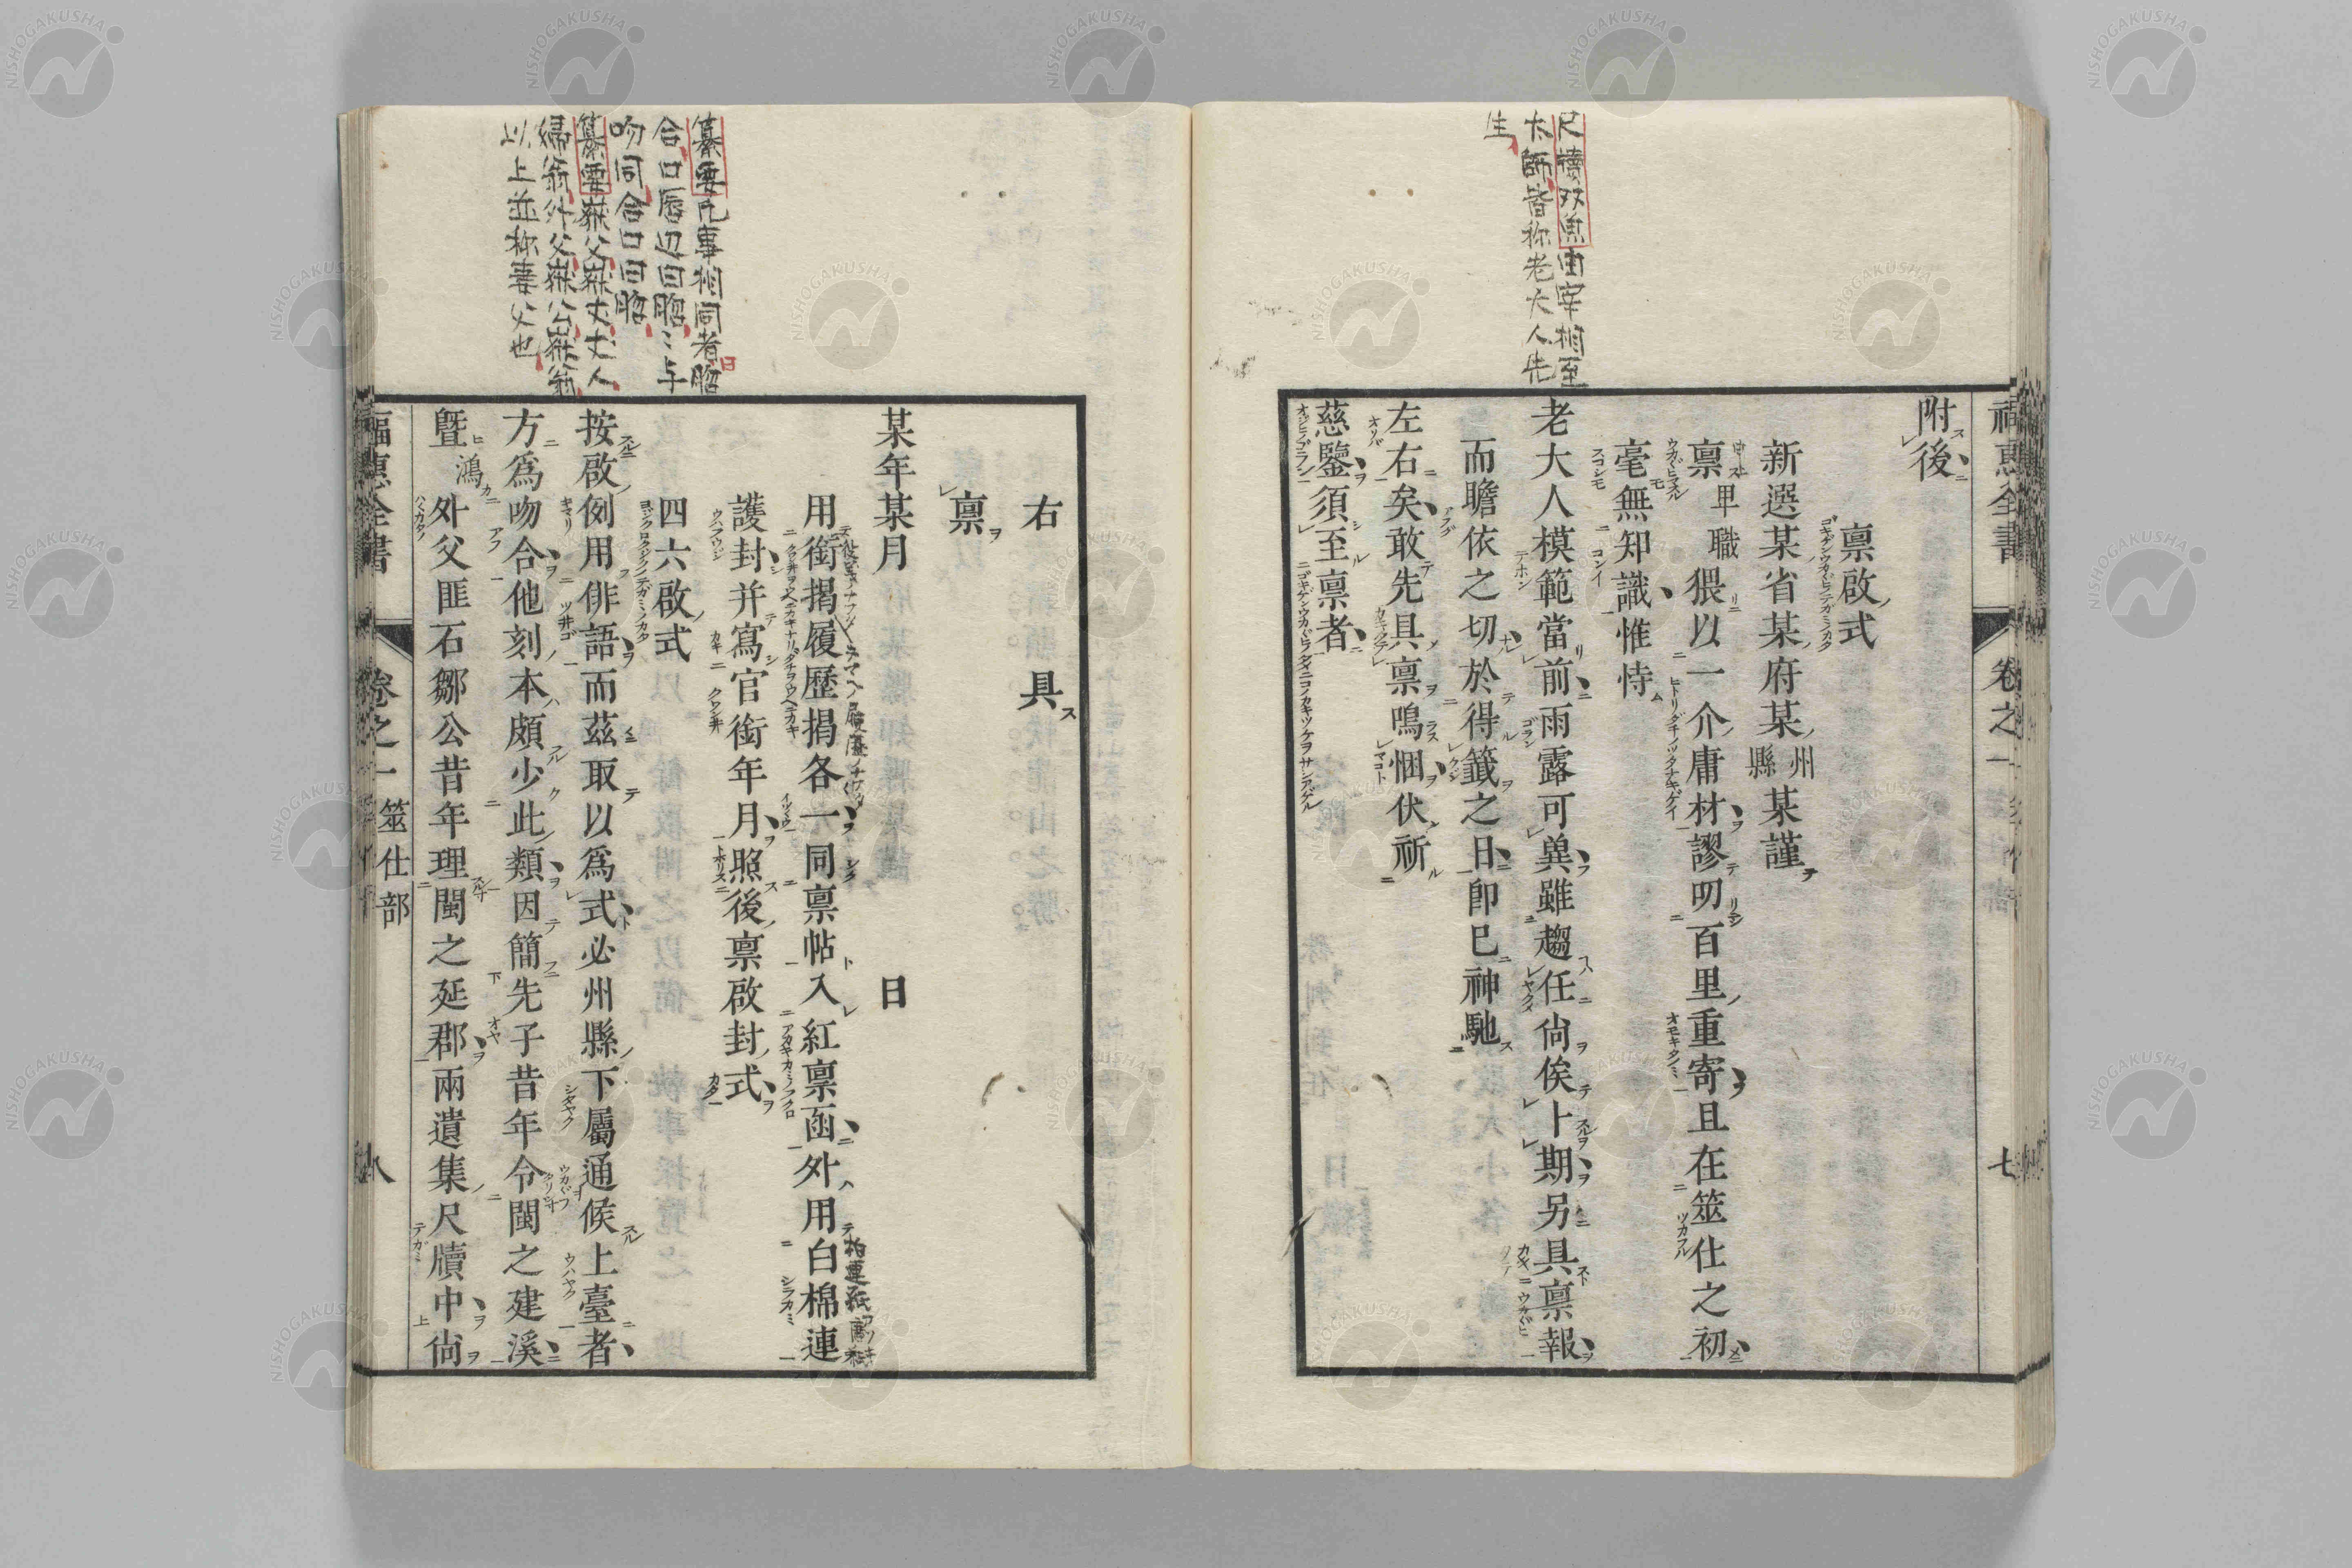 尺牘双魚由宰相至
大師皆称老大人先
生
福惠全書 卷之一 七
附後
禀啟式
新選某省某府某州縣某謹
禀卑職猥以一介庸材謬叨百里重寄且在筮仕之初
毫無知識惟恃
老大人模範當前雨露可冀雖趨任尙俟卜期另具禀報
而瞻依之切於得籤之日卽巳神馳
左右矣敢先具禀鳴悃伏祈
慈鑒須至禀者
纂要凡事相同者曰䐇
合口唇辺曰䐇々与
吻同合口曰䐇
纂要嶽父嶽丈丈人
婦翁外父嶽公嶽翁
以上並称妻父也
右 具
禀
某年某月 日
用銜揭履歷揭各一同禀帖入紅禀函外用白棉連
護封并寫官銜年月照後禀啟封式
四六啟式
按啟例用俳語而茲取以爲式必州縣下屬通候上臺者
方爲吻合他刻本頗少此類因簡先子昔年令閩之建溪
曁鴻外父匪石鄒公昔年理閩之延郡兩遺集尺牘中尙
福惠全書 卷之一 筮仕部 八